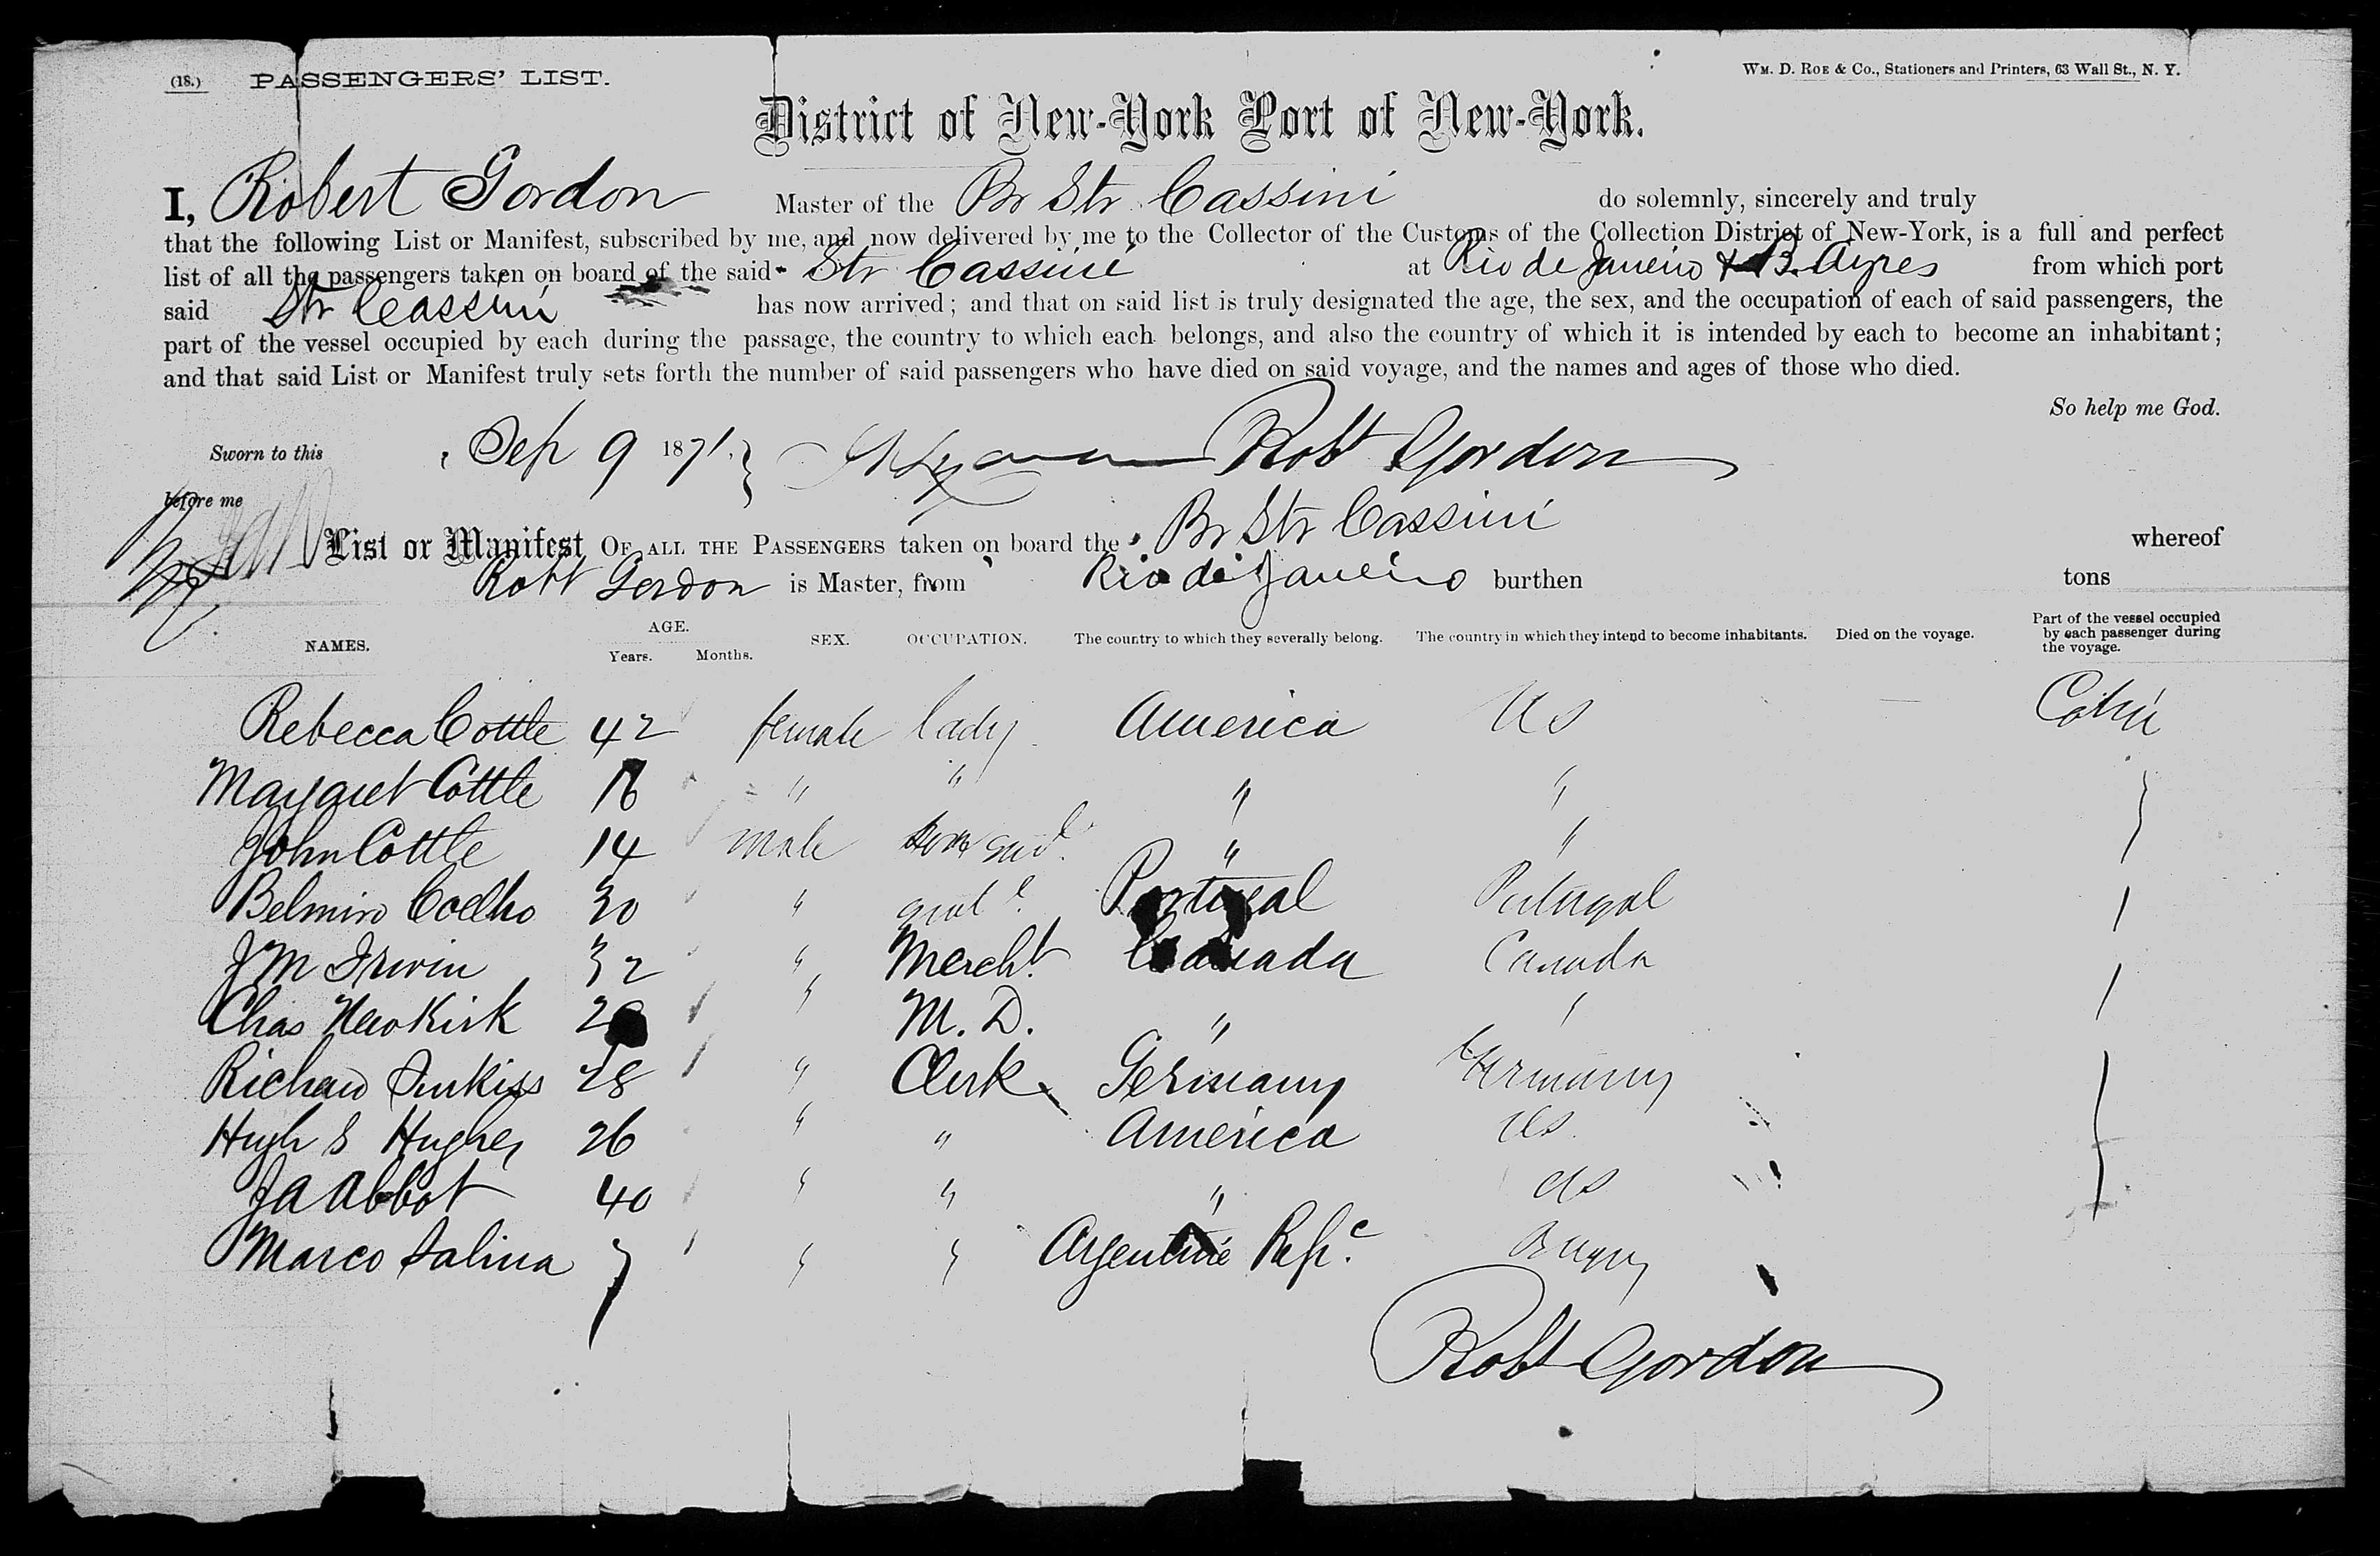 (18.) PASSENGERS' LIST.
WM. D. ROE & Co., Stationers and Printers, 63 Wall St., N. Y.
District of New-York Port of New-York.
I, Robert Gordon Master of the Br Str Cassini do solemnly, sincerely and truly
that the following List or Manifest, subscribed by me, and now delivered by me to the Collector of the Customs of the Collection District of New-York, is a full and perfect
list of all the passengers taken on board of the said Str Cassini at Rio de Janeiro & B. Ayres from which port
said Str Cassini has now arrived; and that on said list is truly designated the age, the sex, and the occupation of each of said passengers, the
part of the vessel occupied by each during the passage, the country to which each belongs, and also the country of which it is intended by each to become an inhabitant;
and that said List or Manifest truly sets forth the number of said passengers who have died on said voyage, and the names and ages of those who died.
So help me God.
Sworn to this Sep 9 1871. Robt Gordon
before me
List or Manifest OF ALL THE PASSENGERS taken on board the Br Str Cassini whereof
Robt Gordon is Master, from Rio de Janeiro burthen tons
NAMES. AGE. Years. Months. SEX. OCCUPATION. The country to which they severally belong. The country in which they intend to become inhabitants. Died on the voyage. Part of the vessel occupied by each passenger during the voyage.
Rebecca Cottle 42 female lady America US — Cabin
Margaret Cottle 16 " " " "
John Cottle 14 male " "
Belmiro Coelho 30 " Portugal Portugal
J M Irwin 32 " Mercht. Canada Canada
Chas Newkirk " M. D. " "
Richard 28 " Clerk Germany Germany
Hugh S Hughes 26 " " America US
J A Abbot 40 " " " US
Marco Salina " " Argentine Repc. B Ayres
Robt Gordon